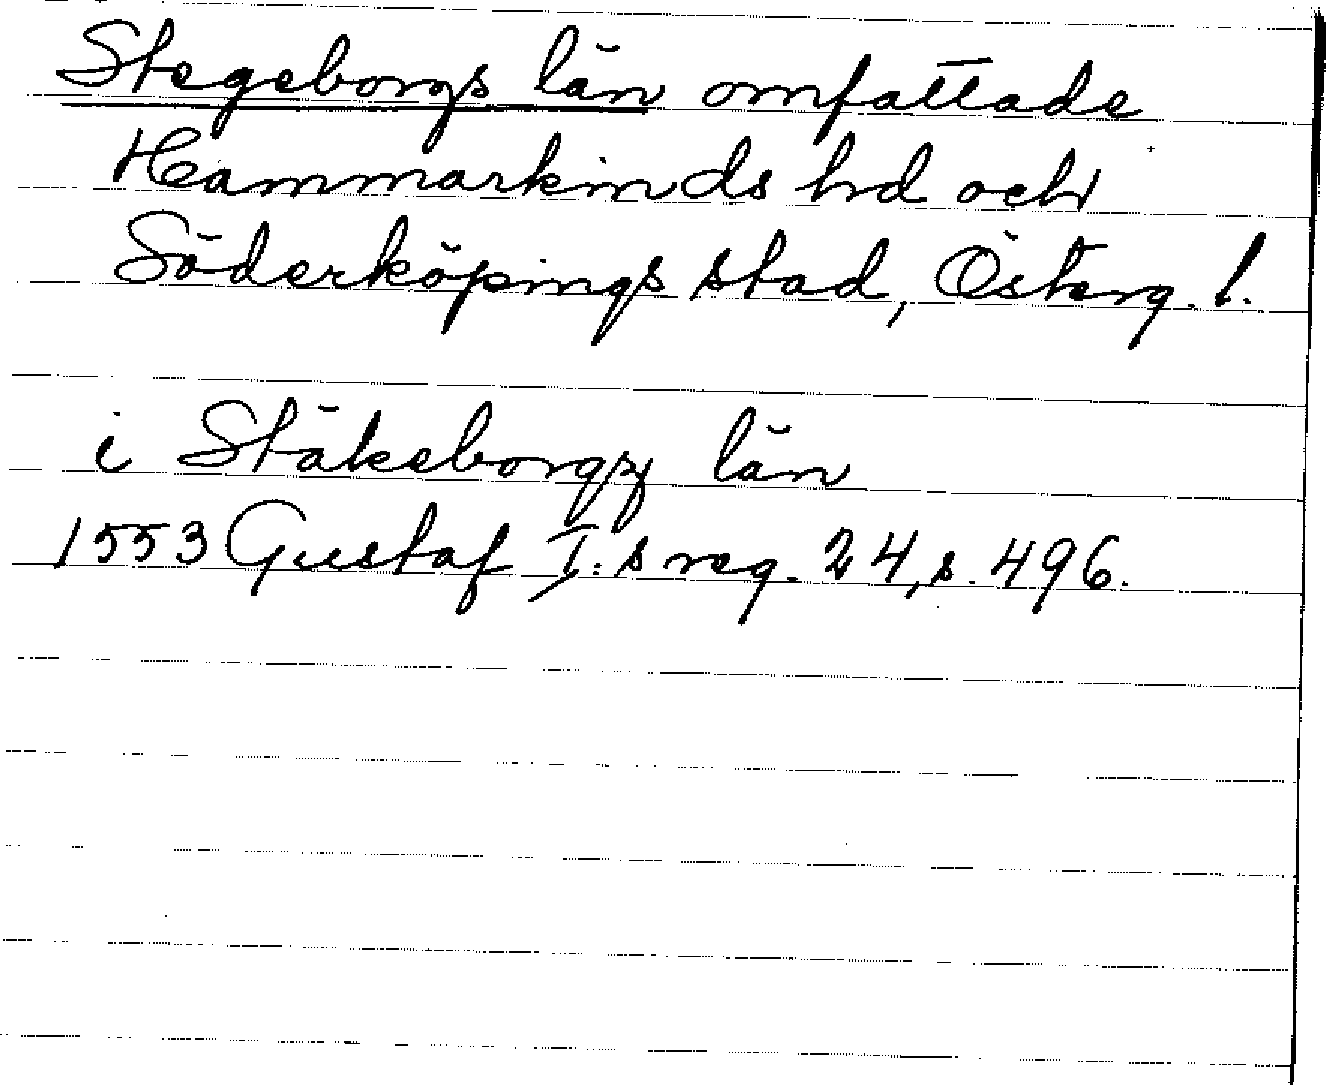 Stegeborgs län omfattade
Hammarkinds hd och
Söderköpings stad, Österg. l.
i Stäkeborgx län
1553 Gustaf I:s reg. 24, s. 496.